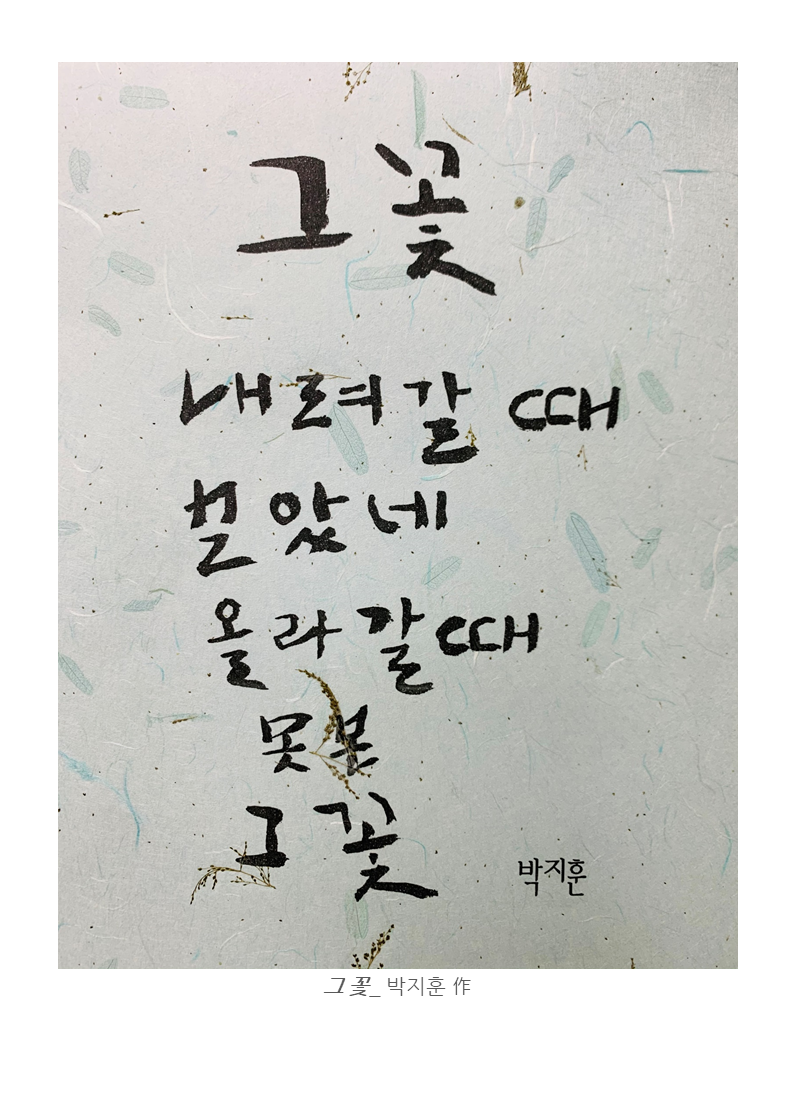 그 꽃
내려갈 때
보았네
올라갈 때
못 본
그 꽃
박지훈
그 꽃_ 박지훈 作